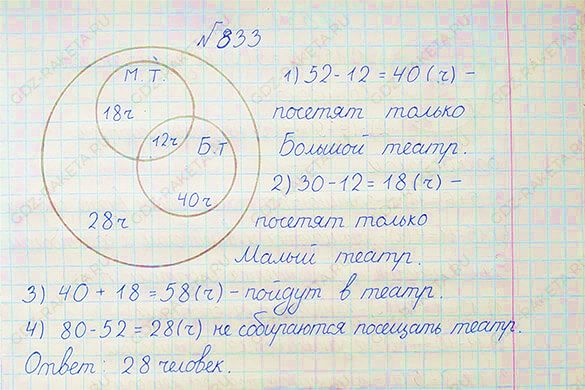 №833
М.Т.
18ч
12ч
Б.т
40ч
28ч
1) 52-12=40(ч)-
посетят только
Большой театр.
2) 30-12=18(ч)-
посетят только
Малый театр.
3) 40+18=58(ч)-пойдут в театр.
4) 80-52=28(ч) не собираются посещать театр.
Ответ: 28 человек.
GDZ-RAKETA.RU